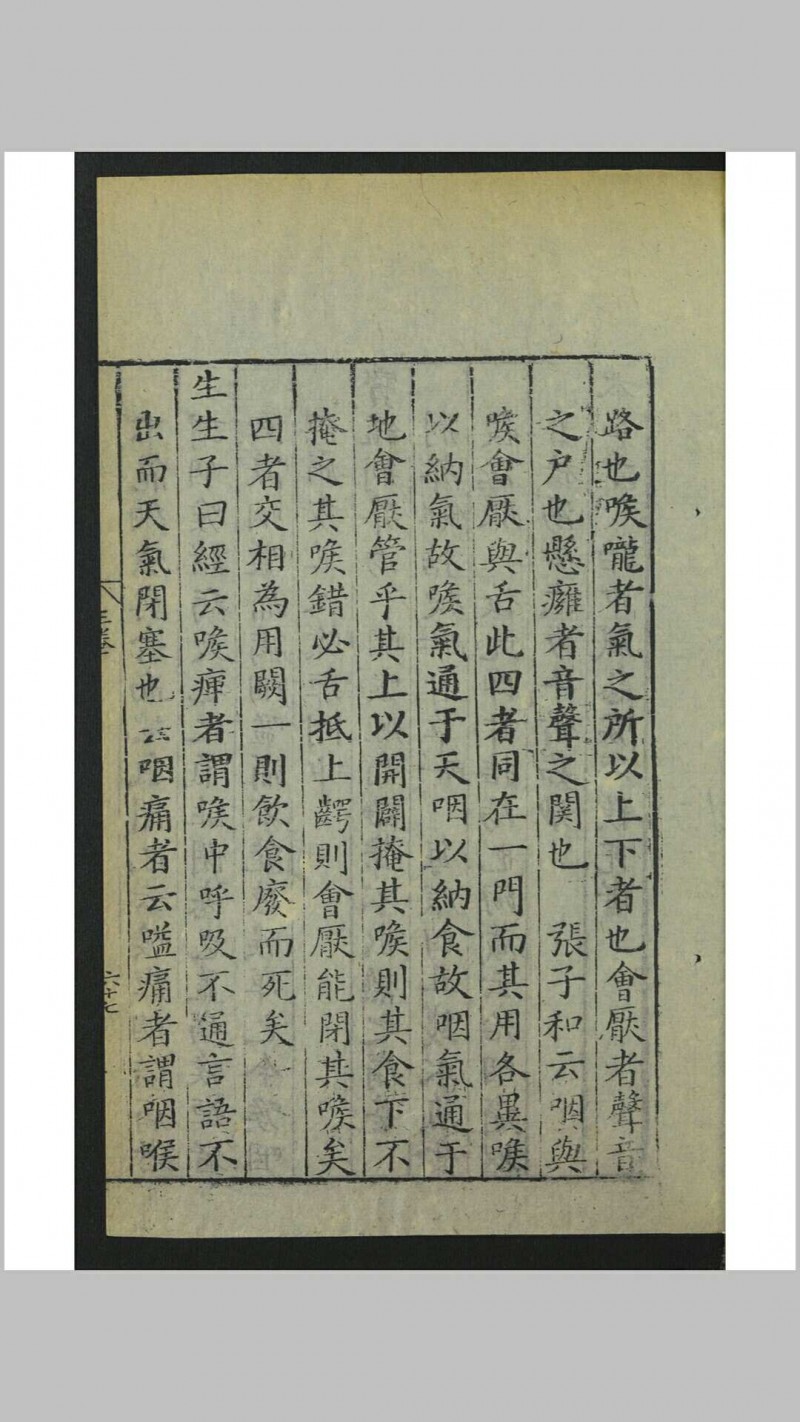 路也喉嚨者氣之所以上下者也會厭者聲音
之户也懸癰者音聲之関也　張子和云咽與
喉會厭與舌此四者同在一門而其用各異喉
以納氣故喉氣通于天咽以納食故咽氣通于
地會厭管乎其上以開闢掩其喉則其食下不
掩之其喉錯必舌抵上齶則會厭能閉其喉矣
四者交相為用闕一則飲食廢而死矣
生生子曰經云喉痺者謂喉中呼吸不通言語不
出而天氣閉塞也云咽痛者云嗌痛者謂咽喉
三卷
六十七